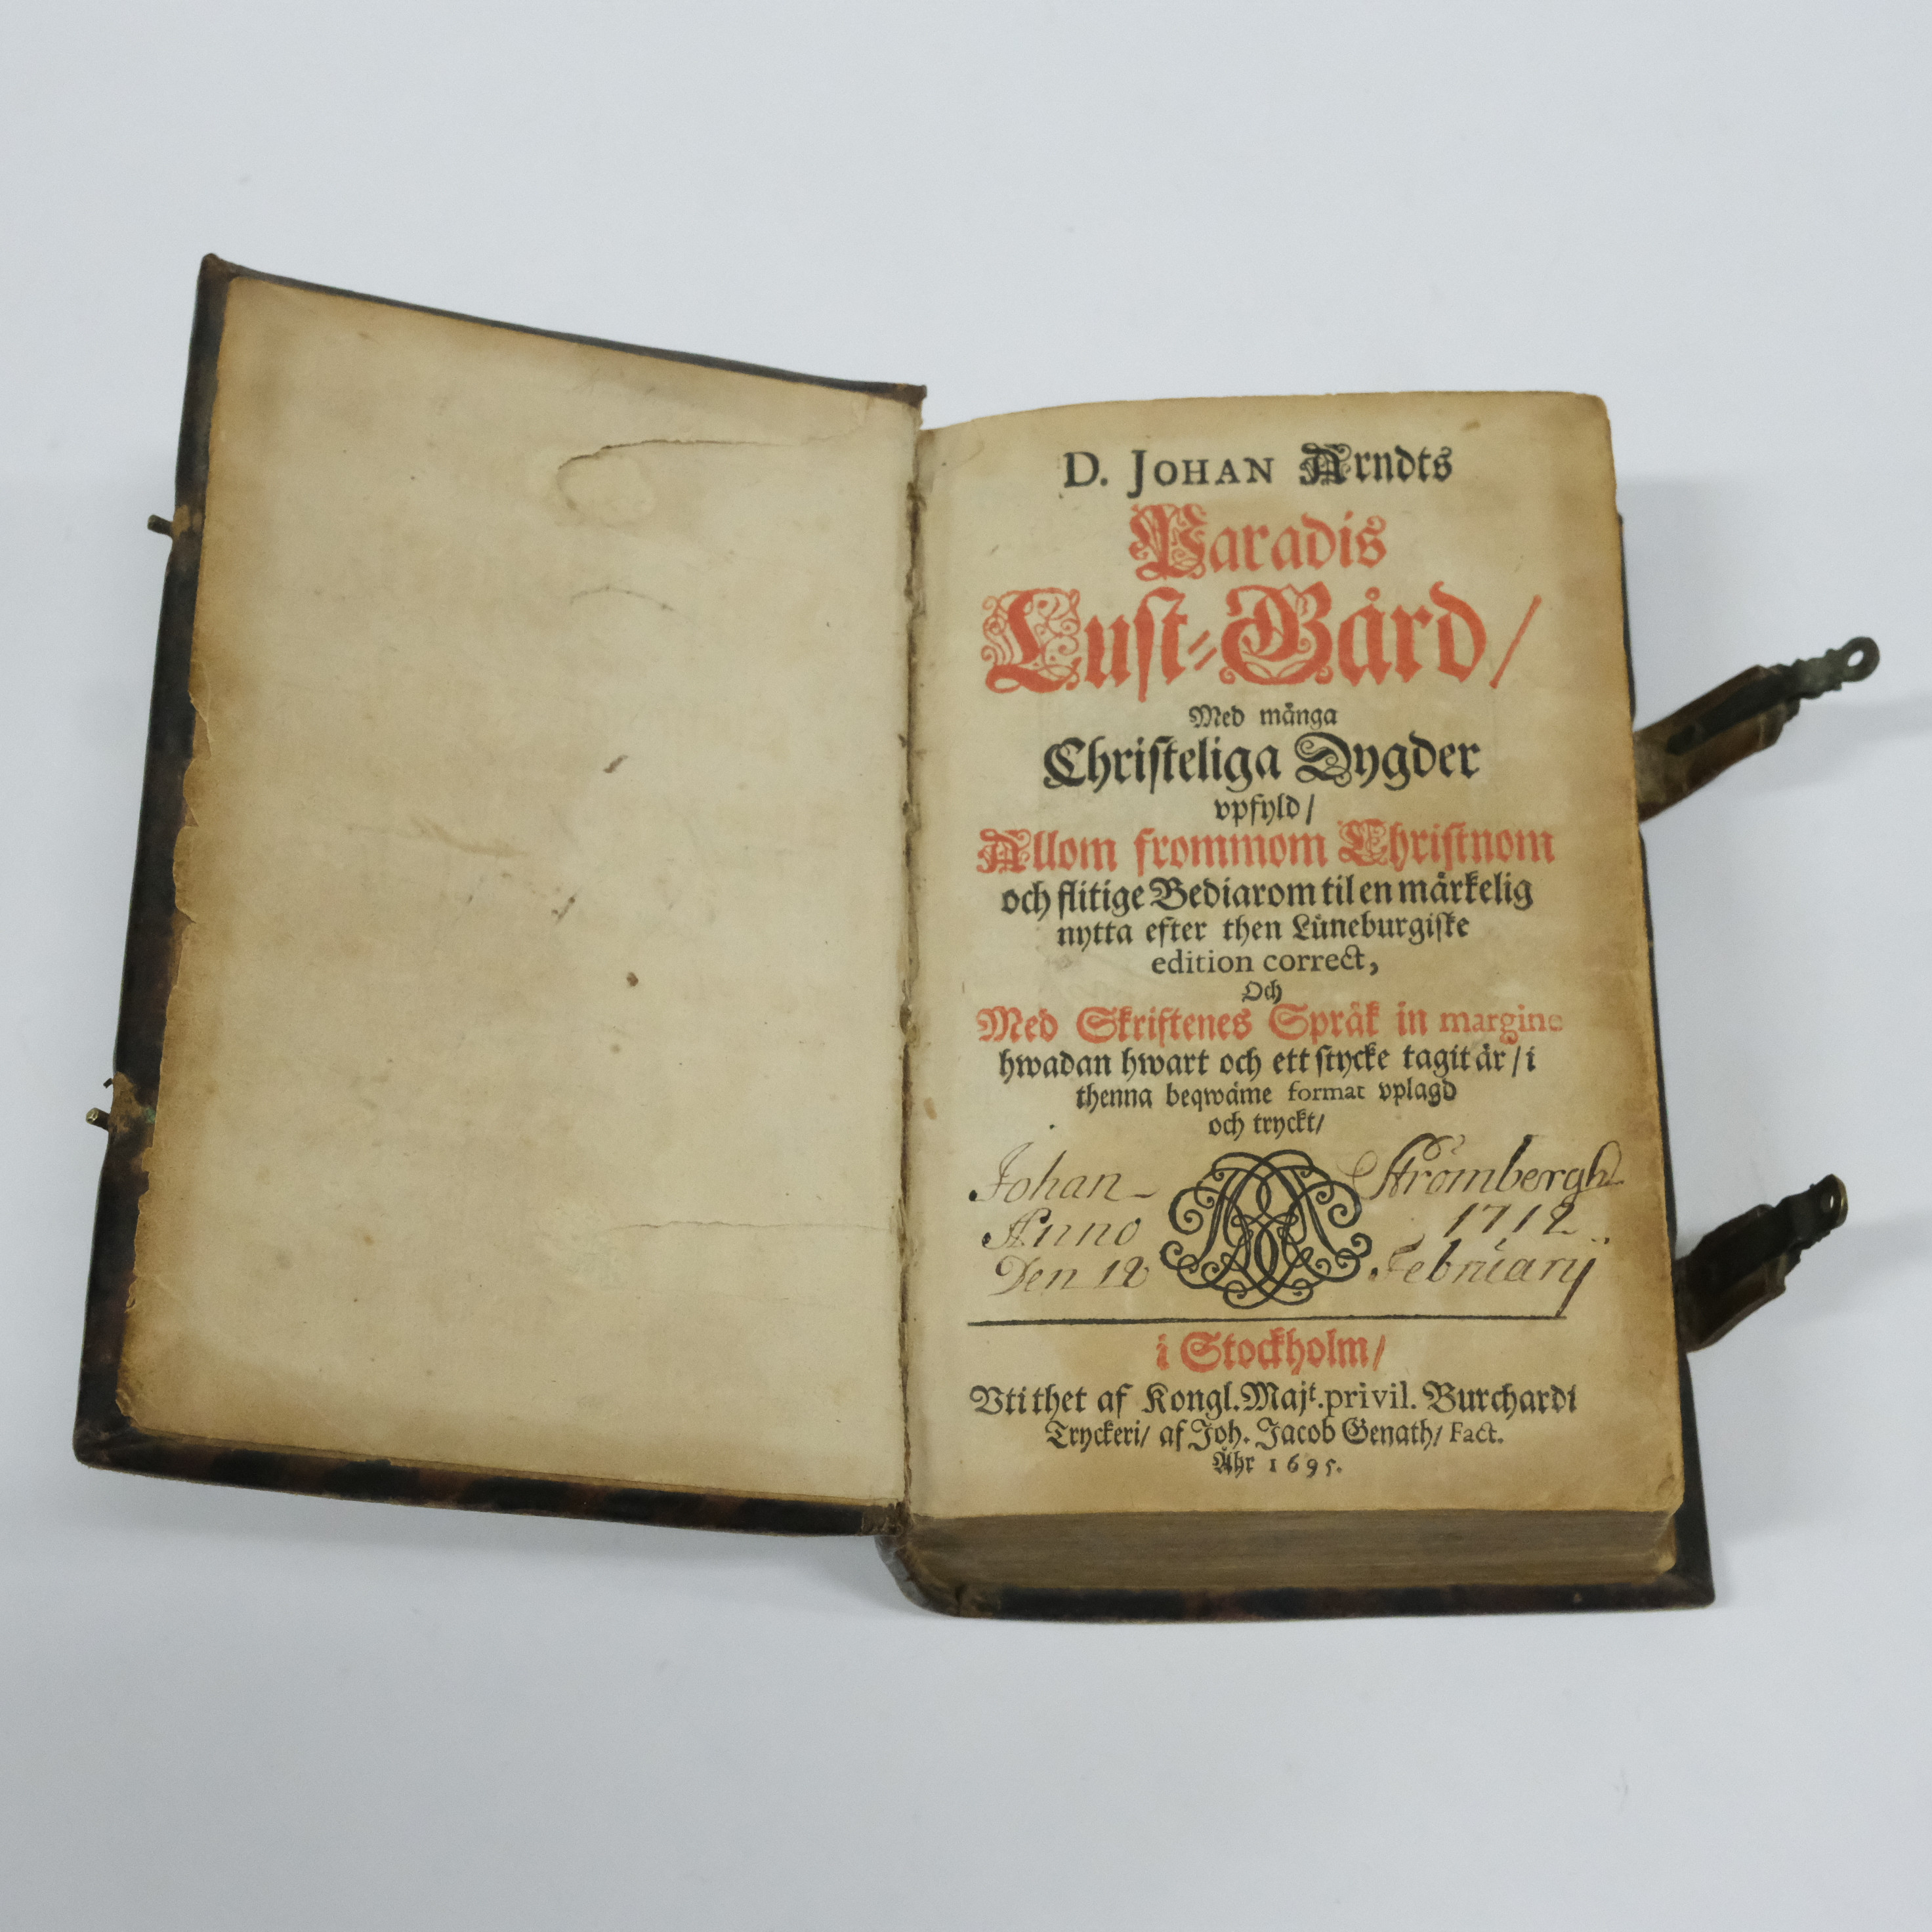 D. JOHAN Arndts
Paradis
Lust-Gård/
Med många
Christeliga Dygder
vpfyld/
Allom frommom Christnom
och flitige Bediarom til en märkelig
nytta efter then Lüneburgiske
edition correct,
Och
Med Skriftenes Språk in margine
hwadan hwart och ett stycke tagit är/ i
thenna beqwäme format vplagd
och tryckt/
Johan Strömbergh
Anno 1712
Den 12 February
i Stockholm/
Vti thet af Kongl. Majt. privil. Burchardi
Tryckeri/ af Joh. Jacob Genath/ Fact.
Åhr 1695.